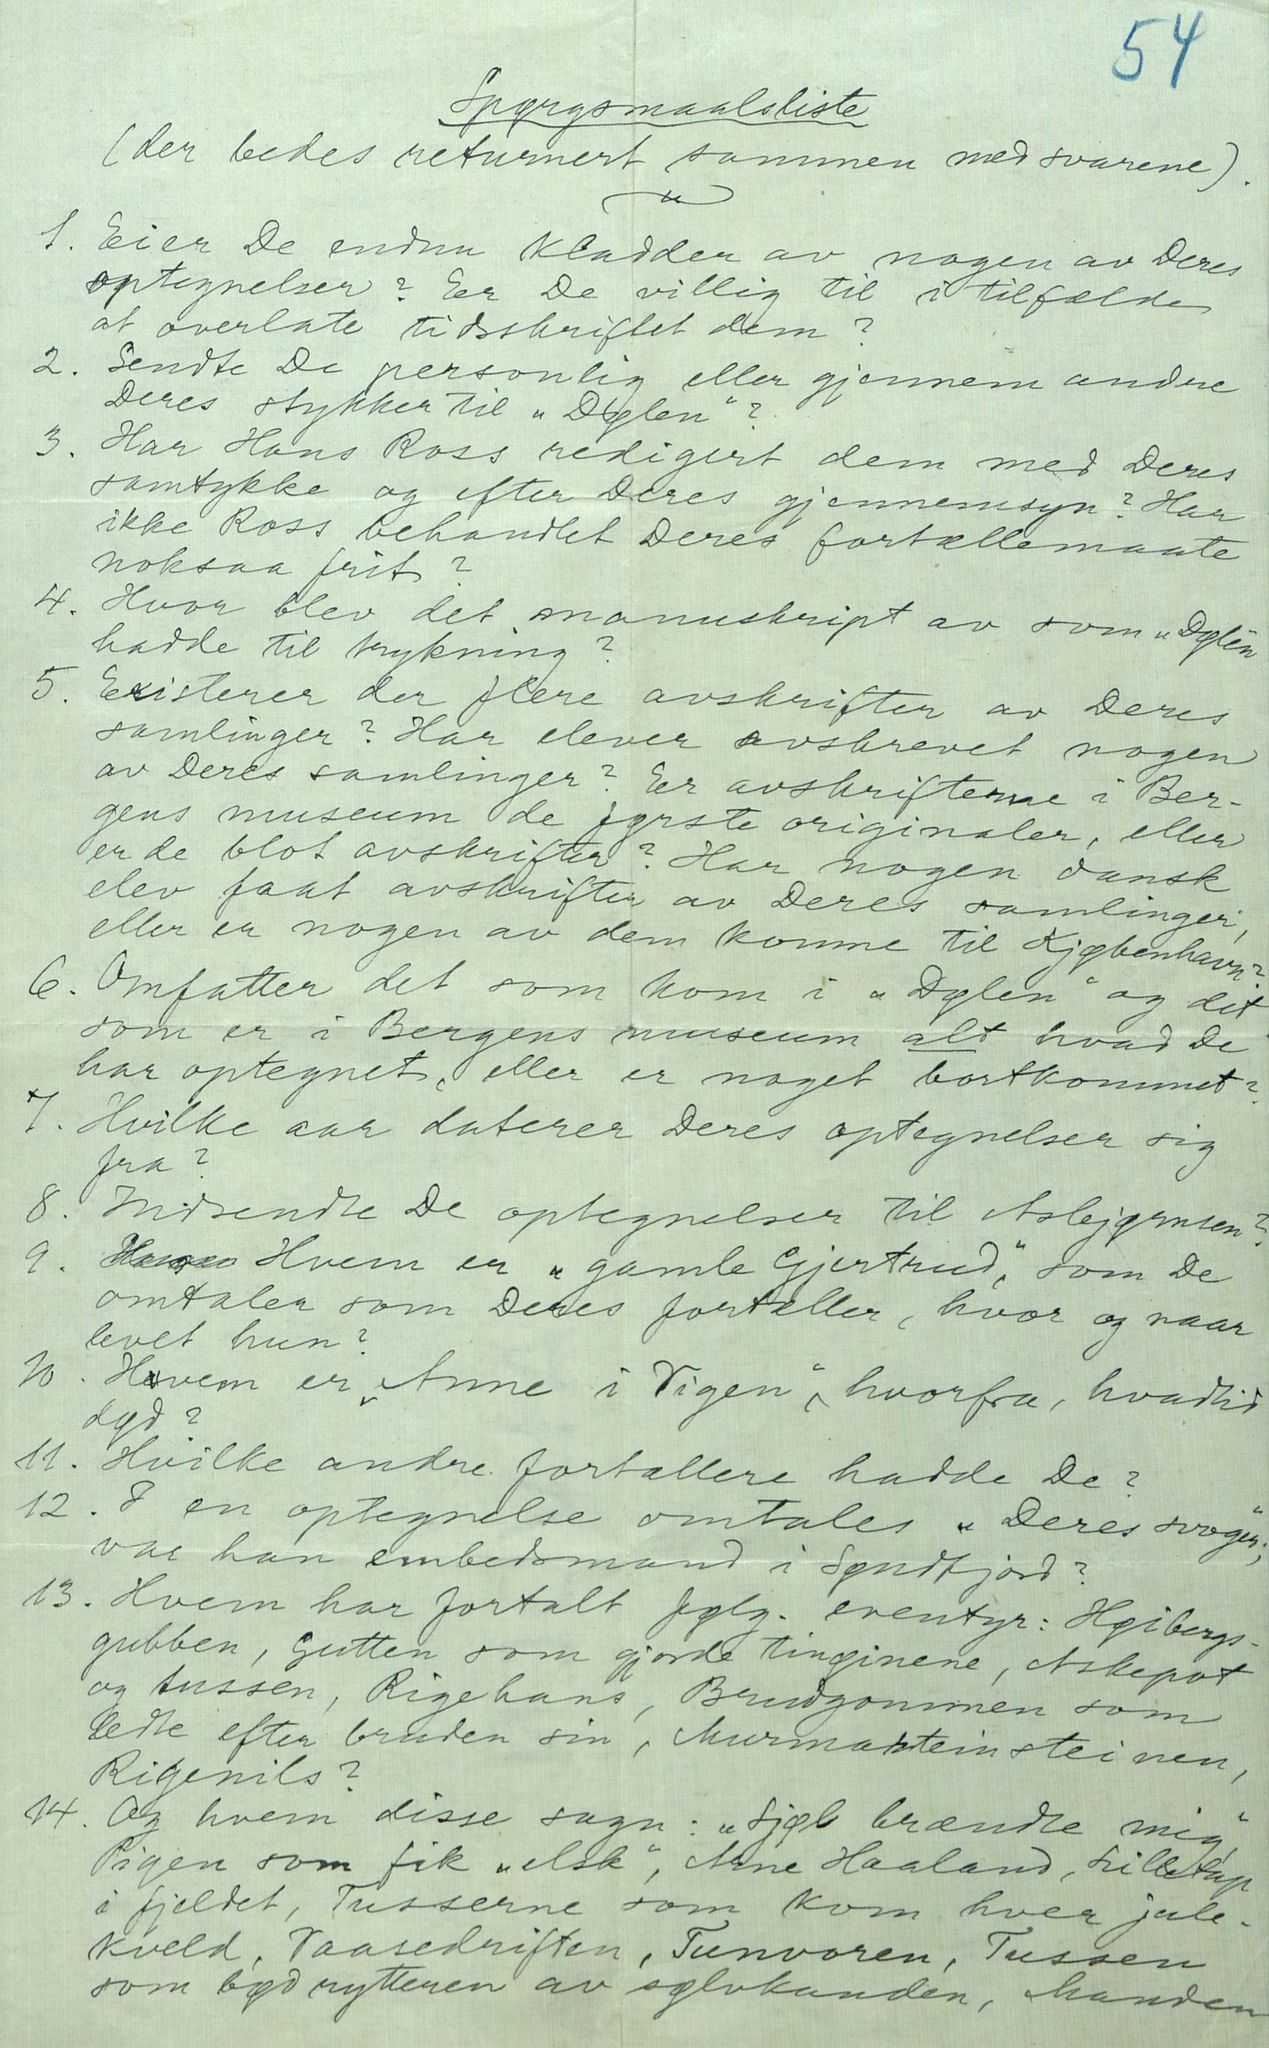 54
Spørgsmaalsliste
(der bedes returnert sammen med svarene).
1. Eier De endnu kladder av nogen av Deres
optegnelser? Er De villig til i tilfælde
at overlate tidsskriftet dem?
2. Sendte De personlig eller gjennem andre
Deres stykker til „Dølen"?
3. Har Hans Ross redigert dem med Deres
samtykke og efter Deres gjennemsyn? Har
ikke Ross behandlet Deres fortællemaate
noksaa frit?
4. Hvor blev det manuskript av som „Dølen
hadde til trykning?
5. Existerer der flere avskrifter av Deres
samlinger? Har elever avskrevet nogen
av Deres samlinger? Er avskrifterne i Ber-
gens museum de første originaler, eller
er de blot avskrifter? Har nogen dansk
elev faat avskrifter av Deres samlinger,
eller er nogen av dem komne til Kjøbenhavn?
6. Omfatter det som kom i „Dølen" og det
som er i Bergens museum alt hvad De
har optegnet, eller er noget bortkommet?
7. Hvilke aar daterer Deres optegnelser sig
fra?
8. Indsendte De optegnelser til Asbjørnsen?
9. Hvem er „gamle Gjertrud", som De
omtaler som Deres fortæller, hvor og naar
levet hun?
10. Hvem er „Anne i Vigen", hvorfra, hvadtid
død?
11. Hvilke andre fortællere hadde De?
12. I en optegnelse omtales „Deres svoger";
var han embedsmand i Søndfjord?
13. Hvem har fortalt følg. eventyr: Høibergs-
gubben, Gutten som gjorde tinginene, Askepot
og tussen, Rigehans, Brudgommen som
ledte efter bruden sin, Murmansteinsteinen,
Rigenils?
14. Og hvem disse sagn: „Sjøl brændte mig",
Pigen som fik „elsk", Arne Haaland,
i fjeldet, Tusserne som kom hver jule-
kveld, Vaasedriften, Tunvoren, Tussen
som bød rytteren av sølvkanden, Manden